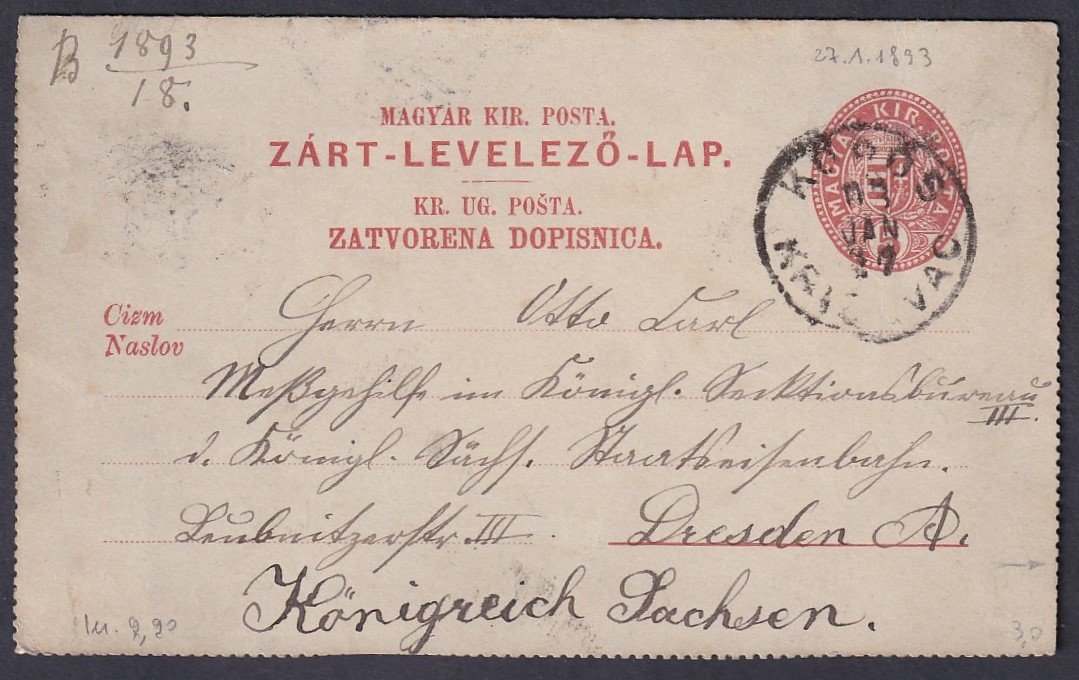 B 1893
18.
27.1.1893
MAGYAR KIR. POSTA.
ZÁRT-LEVELEZŐ-LAP.
KR. UG. POŠTA.
ZATVORENA DOPISNICA.
MAGYAR KIR. POSTA
KÖRÖS
93
JAN
27
Czim
Naslov
Herrn Otto Carl
Meßgehilfe im Königl. Secktionsbureau
III.
d. Königl. Sächs. Staatseisenbahn.
Leubnitzerstr. III. Dresden A.
Königreich Sachsen.
2,20
3,0